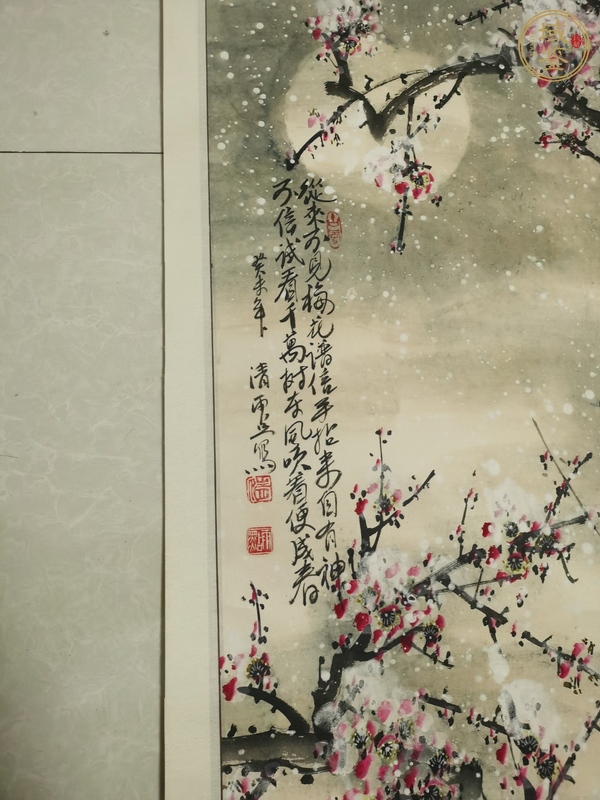 從來不見梅花譜信手拈来自有神
不信試看千萬树东風吹着便成春
癸未年 清雨寫